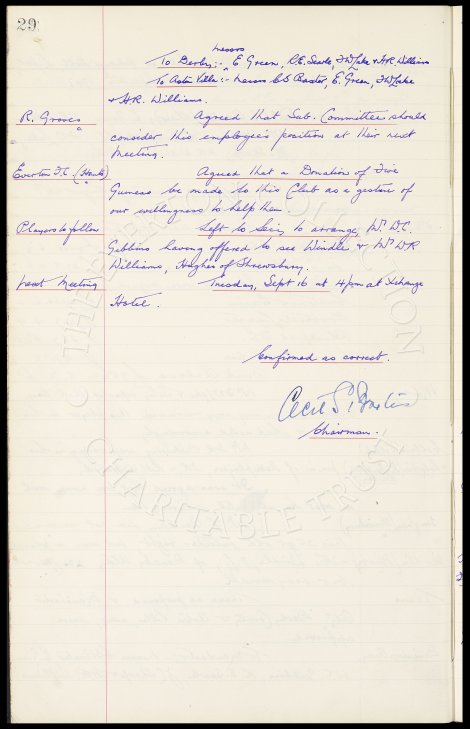 29
Messrs
To Derby:- E Green, R.E. Searle, F.W. Lake & H.R. Williams
To Aston Villa:- Messrs C.S. Baxter, E. Green, F.W. Lake
& H.R. Williams.
R. Groves Agreed that Sub. Committee should
consider this employee's position at their next
Meeting.
Everton F.C. Agreed that a Donation of Five
Guineas be made to this Club as a gesture of
our willingness to help them
Players to follow Left to Secy to arrange, Mr W.C.
Gibbins having offered to see Windle & Mr W.R
Williams, Hughes of Shrewsbury.
next Meeting Tuesday, Sept 16 at 4pm at Xchange
Hotel.
Confirmed as correct.
Cecil S. Baxter
Chairman.
CHARITABLE TRUST